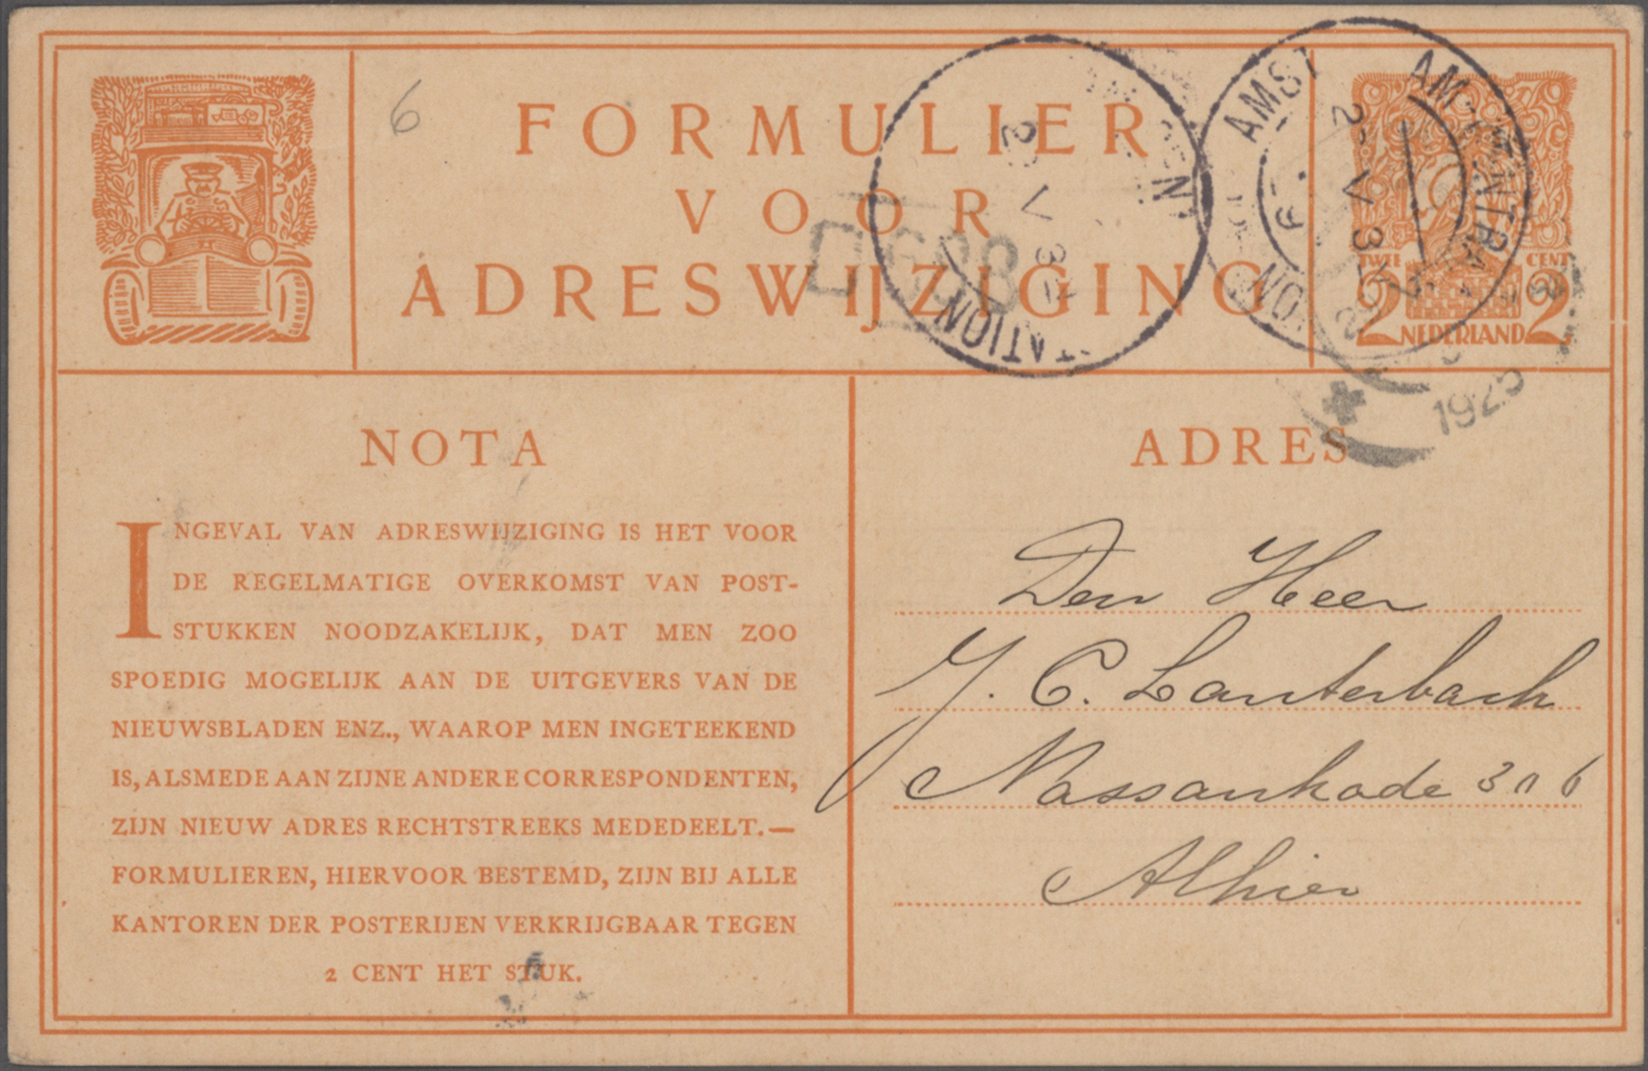 6
FORMULIER
VOOR
ADRESWIJZIGING
TWEE CENT
2 NEDERLAND 2
AMST
CENTRAAL
STATION
V 3-
1925
NOTA
INGEVAL VAN ADRESWIJZIGING IS HET VOOR
DE REGELMATIGE OVERKOMST VAN POST-
STUKKEN NOODZAKELIJK, DAT MEN ZOO
SPOEDIG MOGELIJK AAN DE UITGEVERS VAN DE
NIEUWSBLADEN ENZ., WAAROP MEN INGETEEKEND
IS, ALSMEDE AAN ZIJNE ANDERE CORRESPONDENTEN,
ZIJN NIEUW ADRES RECHTSTREEKS MEDEDEELT.—
FORMULIEREN, HIERVOOR BESTEMD, ZIJN BIJ ALLE
KANTOREN DER POSTERIJEN VERKRIJGBAAR TEGEN
2 CENT HET STUK.
ADRES
Den Heer
J. C. Lauterbach
Nassaukade 306
Alhier